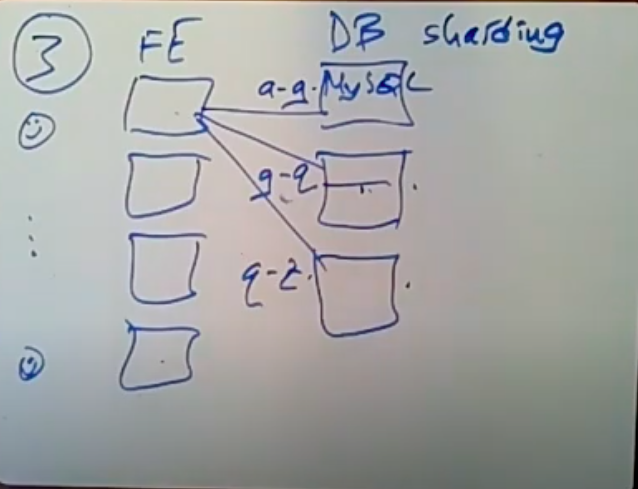 3 FE DB sharding
a-g. MySQL
g-q
q-z.